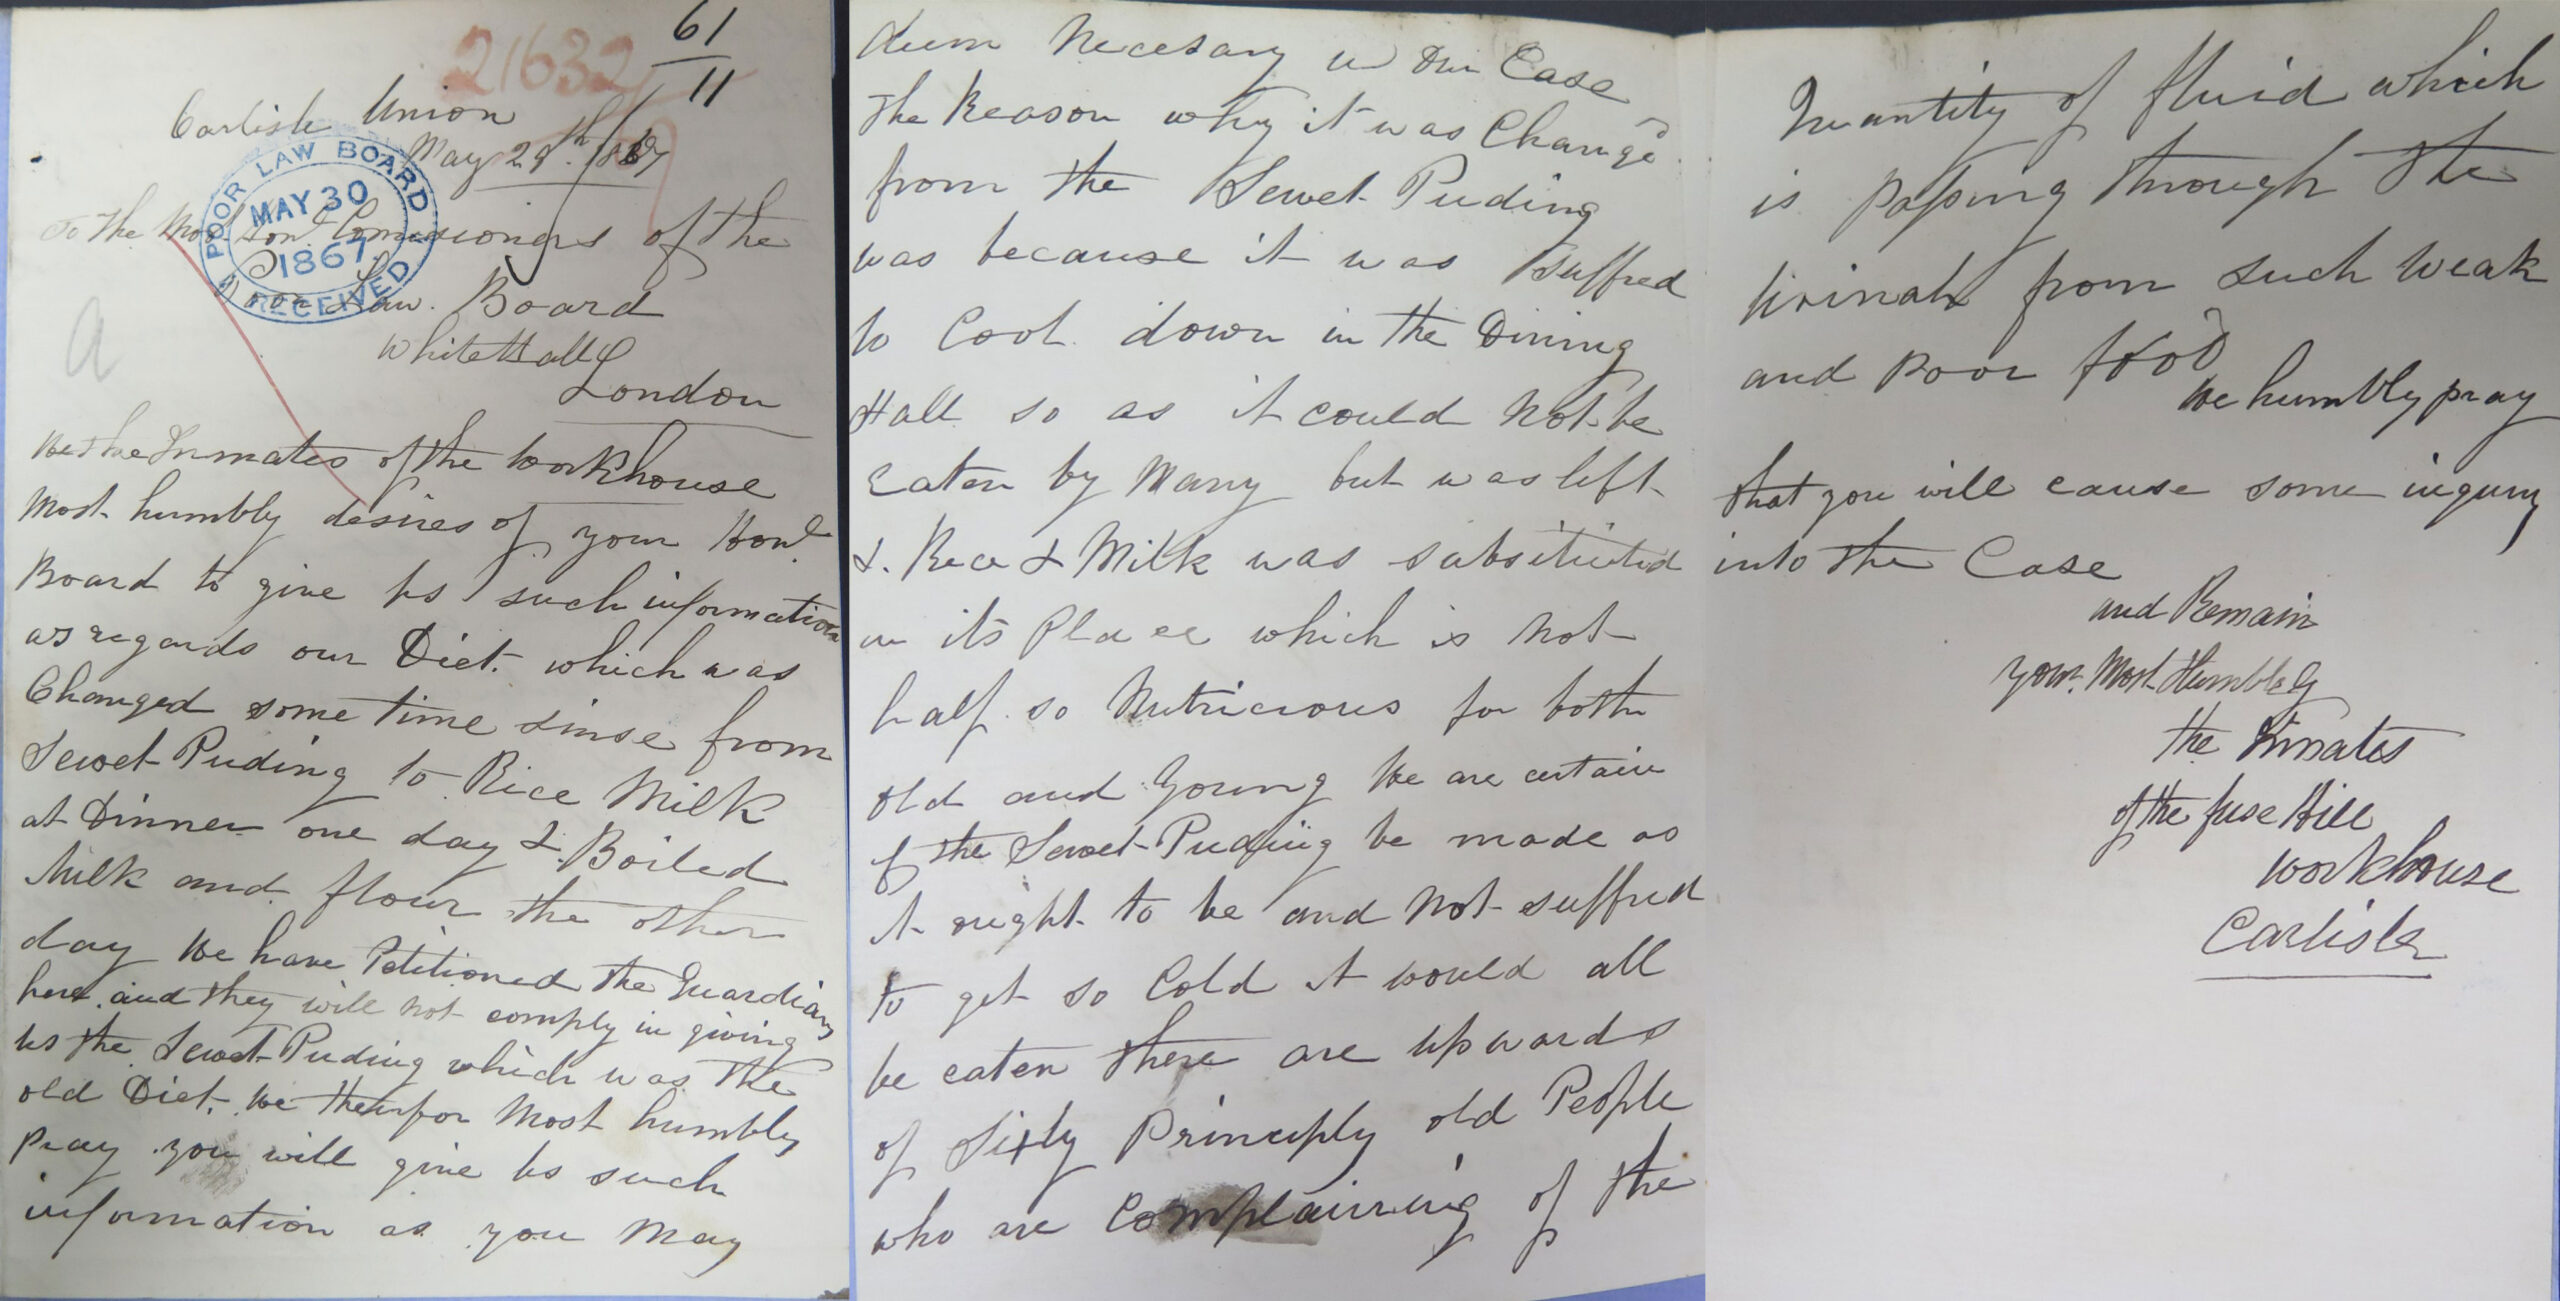 61
11
21632
Carlisle Union
May 29th /67
POOR LAW BOARD
MAY 30
1867
RECEIVED
To the Most Honl Comissioners of the
Poor Law. Board
WhiteHall
London
a
We the Inmates of the Workhouse
Most humbly desires of your Honl
Board to give us such information
as regards our Diet. which was
Changed some time sinse from
Sewet Puding to Rice Milk
at Dinner one day & Boiled
Milk and flour the other
day We have Petitioned the Guardians
here and they will not comply in giving
us the Sewet Puding which was the
old Diet. We therfor Most humbly
Pray you will give us such
information as you May
deem Necesary in Our Case
The Reason why it was Changd
from the Sewet Puding
was because it was suffred
to Cool down in the Dining
Hall so as it could Not be
Eaten by Many but was left
&. Rice & Milk was subsitiuted
in its Place which is Not
half so Nutricious for both
old and Young We are certain
if the Sewet Puding be made as
it ought to be and Not suffred
to get so Cold it would all
be eaten there are upwards
of Sixty Principly old People
who are Complaining of the
Quantity of fluid which
is passing through the
Urinals from such weak
and Poor food
We humbly pray
that you will cause some inquiry
into the Case
and Remain
your Most Humbley
the Inmates
of the fuse Hill
Workhouse
Carlisle